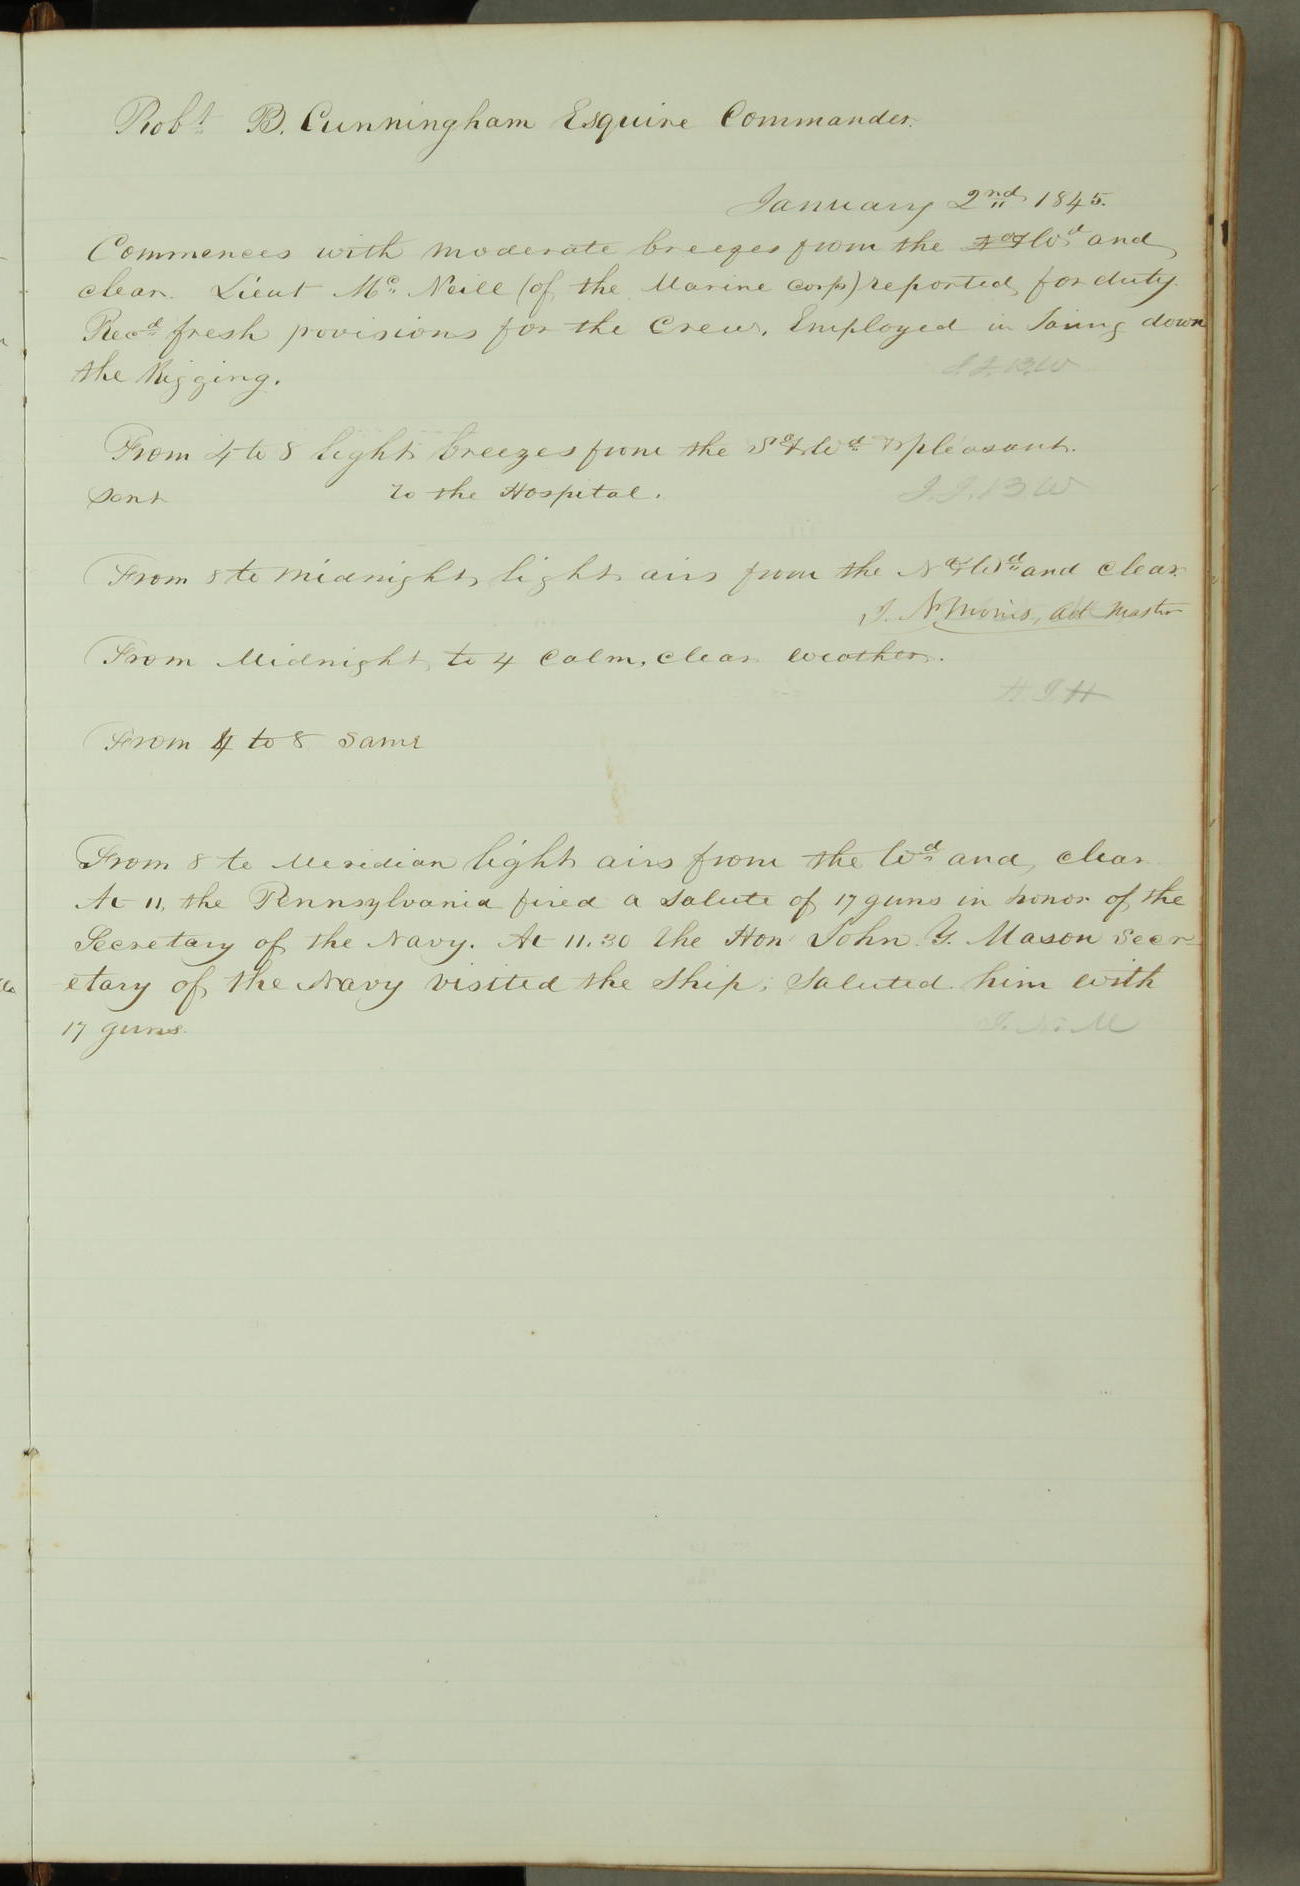 Robt B. Cunningham Esquire Commander.
January 2nd 1845.
Commences with moderate breezes from the N&Wd and
clear. Lieut Mc Neill (of the Marine corps) reported for duty.
Recd fresh provisions for the Crew. Employed in down
the Rigging.
From 4 to 8 light breezes from the Sd&Wd & pleasant.
Sent to the Hospital.
J.J.B.W
From 8 to midnight light airs from the Nd&Wd and clear
J. N. Morris, act Master
From Midnight to 4 Calm, clear weather.
H J H
From 4 to 8 Same
From 8 to Meridian light airs from the Wd and clear
At 11, the Pennsylvania fired a Salute of 17 guns in honor of the
Secretary of the Navy. At 11.30 the Hon John Y. Mason Secr-
etary of the Navy visited the Ship; Saluted him with
17 guns.
J. N. M